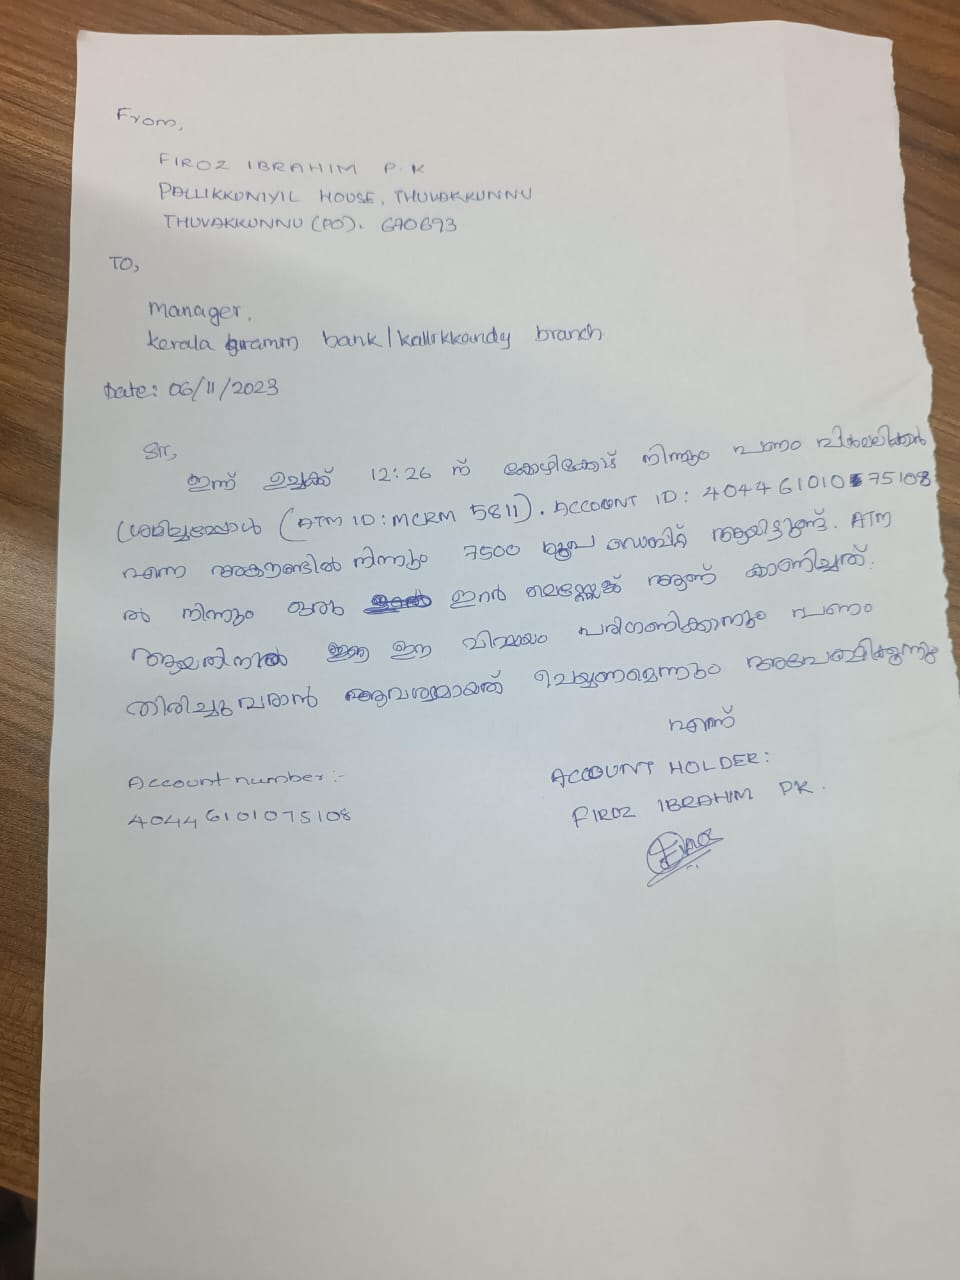 From,
FIROZ IBRAHIM P.K
PALLIKKUNIYIL HOUSE, THUVAKKUNNU
THUVAKKUNNU (PO). 670693
TO,
Manager,
Kerala gramin bank/kallikkandy branch
Date: 06/11/2023
Sir,
ഇന്ന് ഉച്ചക്ക് 12:26 ന് കോഴിക്കോട് നിന്നും പണം പിൻവലിക്കാൻ
ശ്രമിച്ചപ്പോൾ (ATM ID: MCRM 5811). ACCOUNT ID: 40446101075108
എന്ന അകൗണ്ടിൽ നിന്നും 7500 രൂപ ഡെബിറ്റ് ആയിട്ടുണ്ട്. ATM
ൽ നിന്നും ഒരു ഇറർ മെസ്സേജ് ആണ് കാണിച്ചത്.
ആയതിനാൽ ഈ വിഷയം പരിഗണിക്കാനും പണം
തിരിച്ചു വരാൻ ആവശ്യമായത് ചെയ്യണമെന്നും അപേക്ഷിക്കുന്നു
എന്ന്
Account number:-
40446101075108
ACCOUNT HOLDER:
FIROZ IBRAHIM PK.